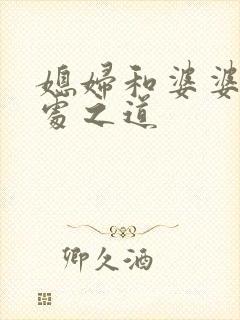 媳婦和婆婆
處之道
卿久酒